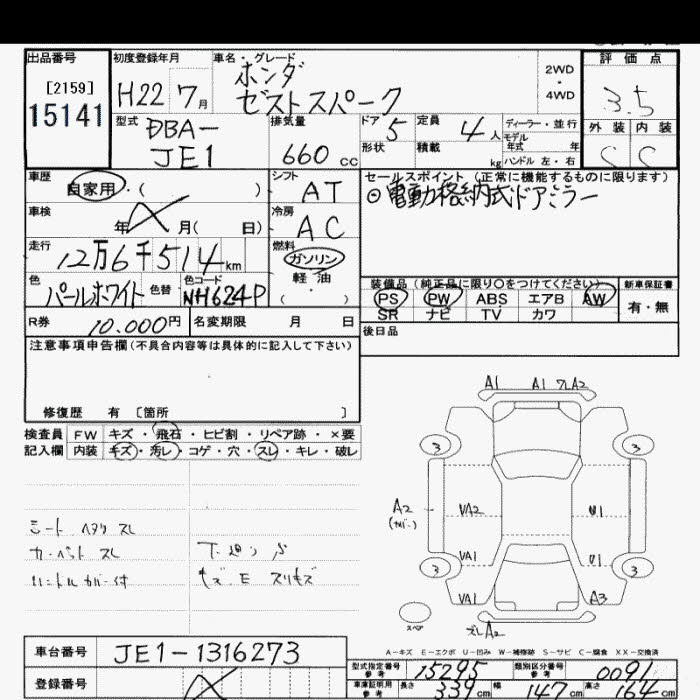 出品番号
[2159]
15141
初度登録年月
H22 7月
車名・グレード
ホンダ
ゼストスパーク
2WD
・
4WD
評価点
3.5
外装 内装
C C
型式
DBA-
JE1
排気量
660 cc
ドア 5
形状
定員 4人
積載 kg
ディーラー・並行
モデル
年式 年
ハンドル 左・右
車歴
自家用・( )
車検
年 月( 日)
走行
12万6千514km
色
パールホワイト
色替
色コード
NH624P
シフト
AT
冷房
AC
燃料
ガソリン
軽・油
( )
セールスポイント(正常に機能するものに限ります)
⊙電動格納式ドアミラー
装備品(純正品に限り〇をつけてください)
PS PW ABS エアB AW
SR ナビ TV カワ
新車保証書
有・無
R券 10.000円
名変期限 月 日
後日品
注意事項申告欄(不具合内容等は具体的に記入して下さい)
修復歴 有 [箇所 ]
検査員
記入欄
FW キズ・飛石・ヒビ割・リペア跡・×要
内装 キズ・汚レ・コゲ・穴・スレ・キレ・破レ
シート ヘタリ スレ
カーペット スレ
ハンドルカバー付
下廻り S
キズ.E スリキズ
A1 A1 フレA2
3 3
A2
(カバー)
VA2 U1
VA1 U1
3 3
VA1 A3
スペア
ズレA2
A-キズ E-エクボ U-凹み W-補修跡 S-サビ C-腐食 XX-交換済
車台番号 JE1-1316273
登録番号
型式指定番号
参考
15295
類別区分番号
参考
0091
車庫証明用
参考
長さ 339cm 幅 147cm 高さ 164cm